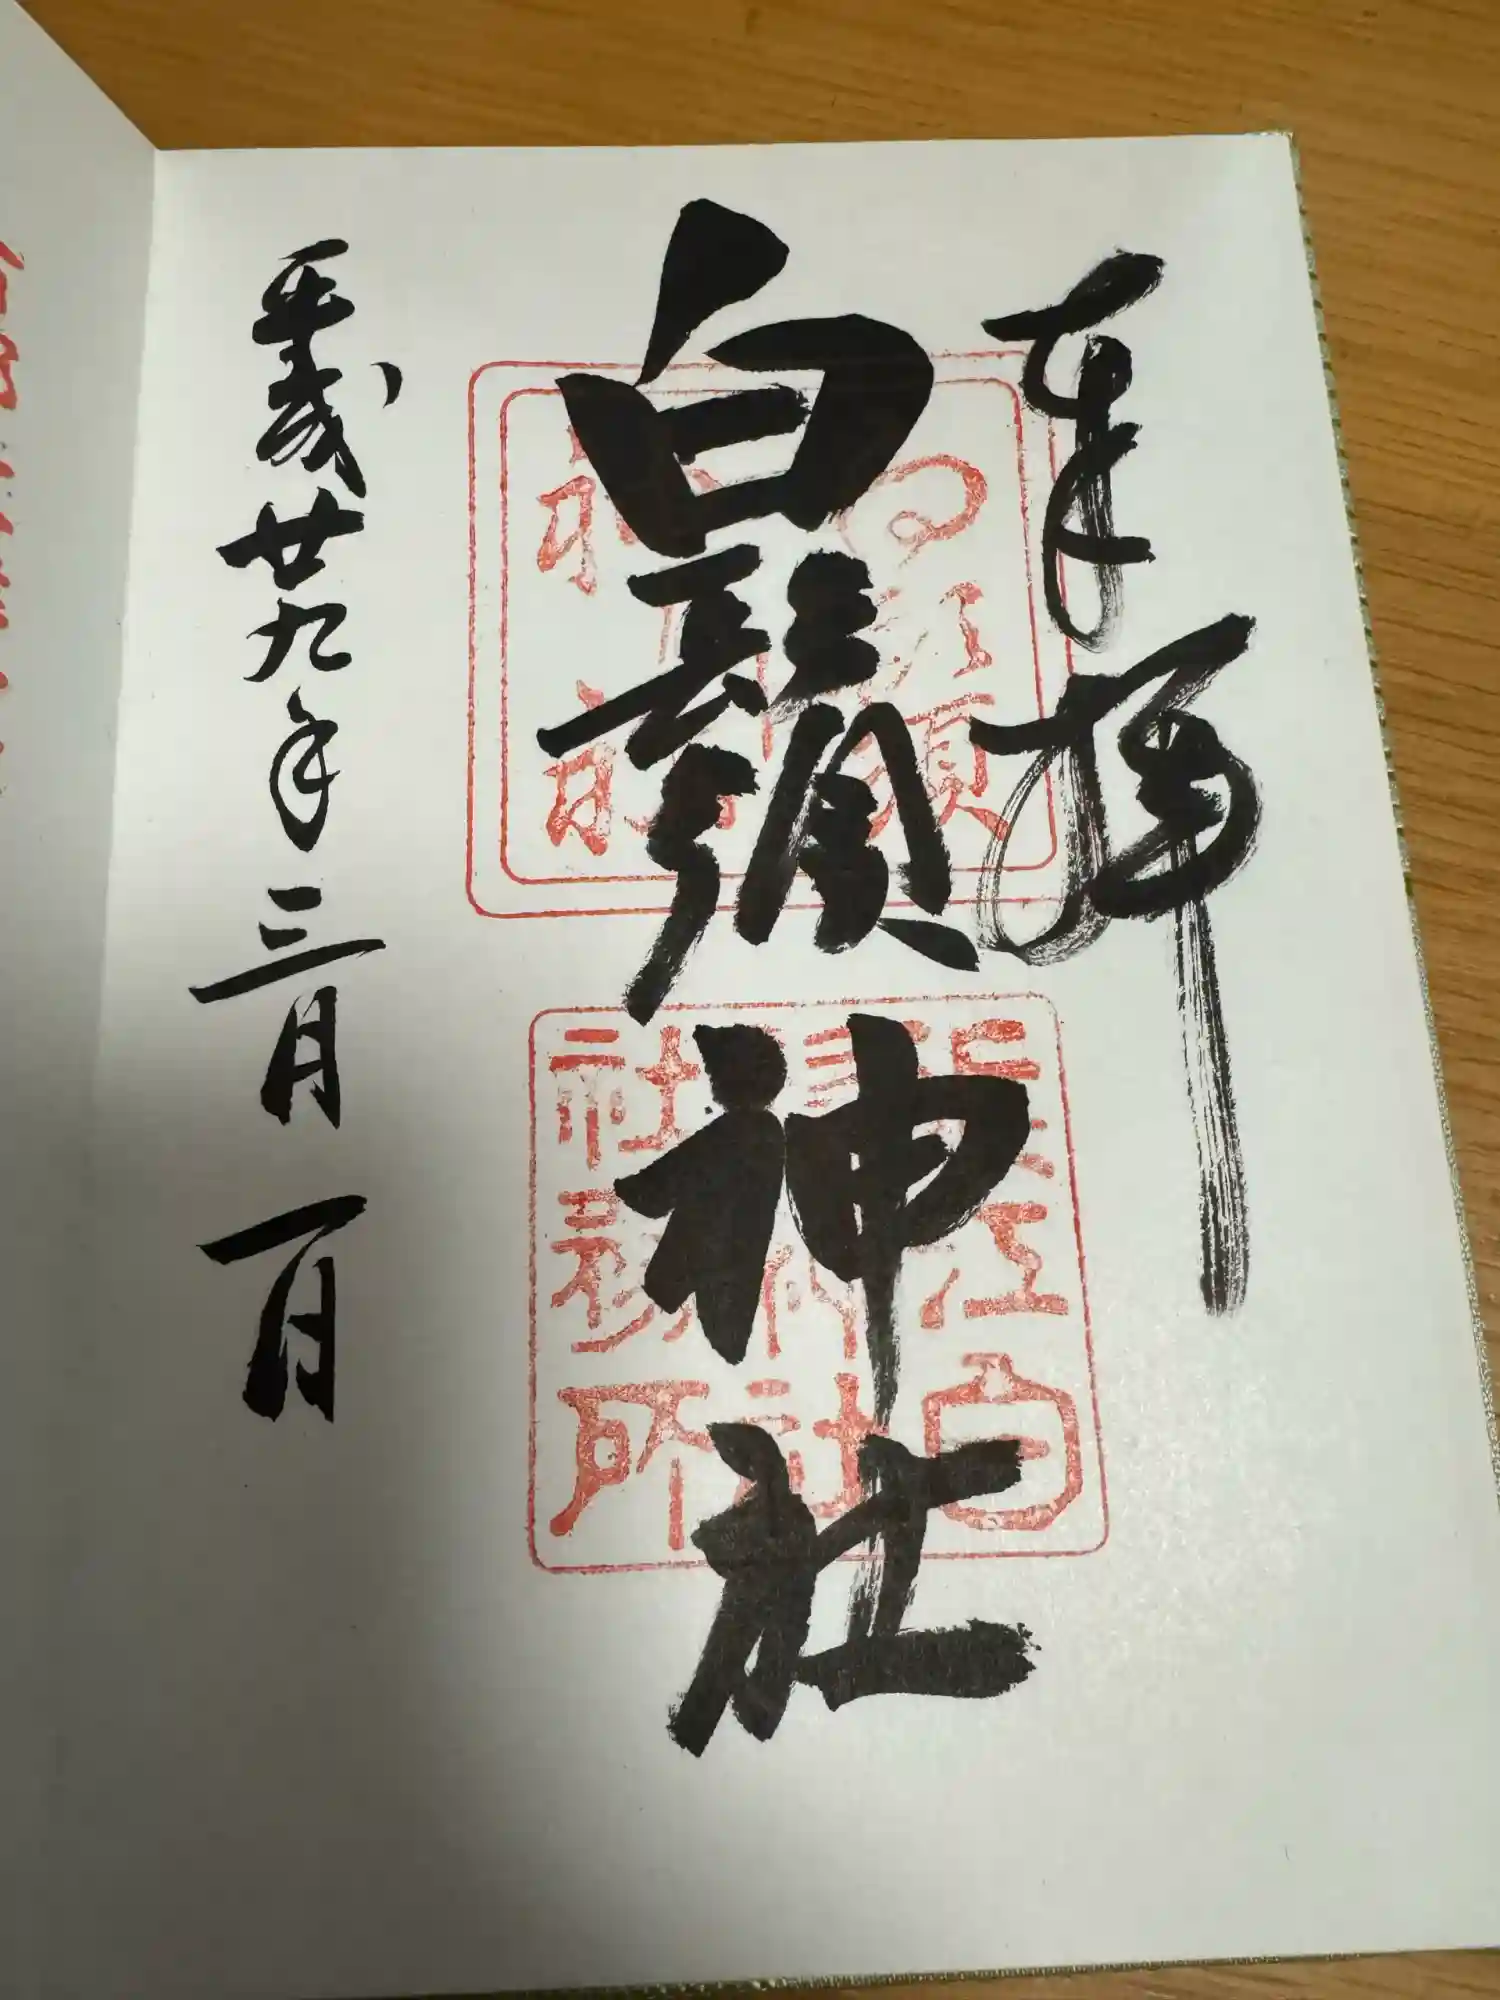 奉拝
白鬚神社
平成廿九年三月一日
白鬚
神社
近江白
鬚神社
社務所